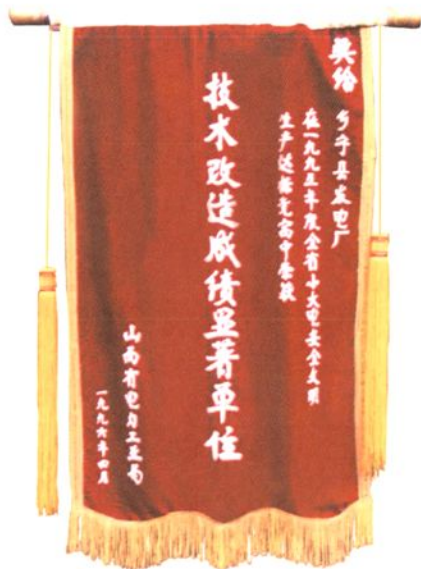 奖给
乡宁县发电厂
在一九九五年度全省小火电安全文明
生产达标竞赛中荣获
技术改造成绩显著单位
山西省电力工业局
一九九六年四月